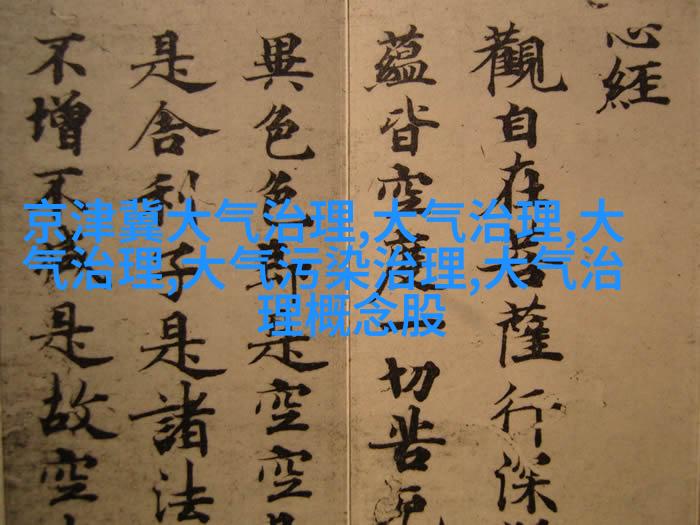 心經
觀自在菩薩行深
蘊皆空度一切苦厄
異色色即是空空
是舍利子是諸法
不增不減是故空
京津冀大气治理,大气治理,大
气治理,大气污染治理,大气治
理概念股